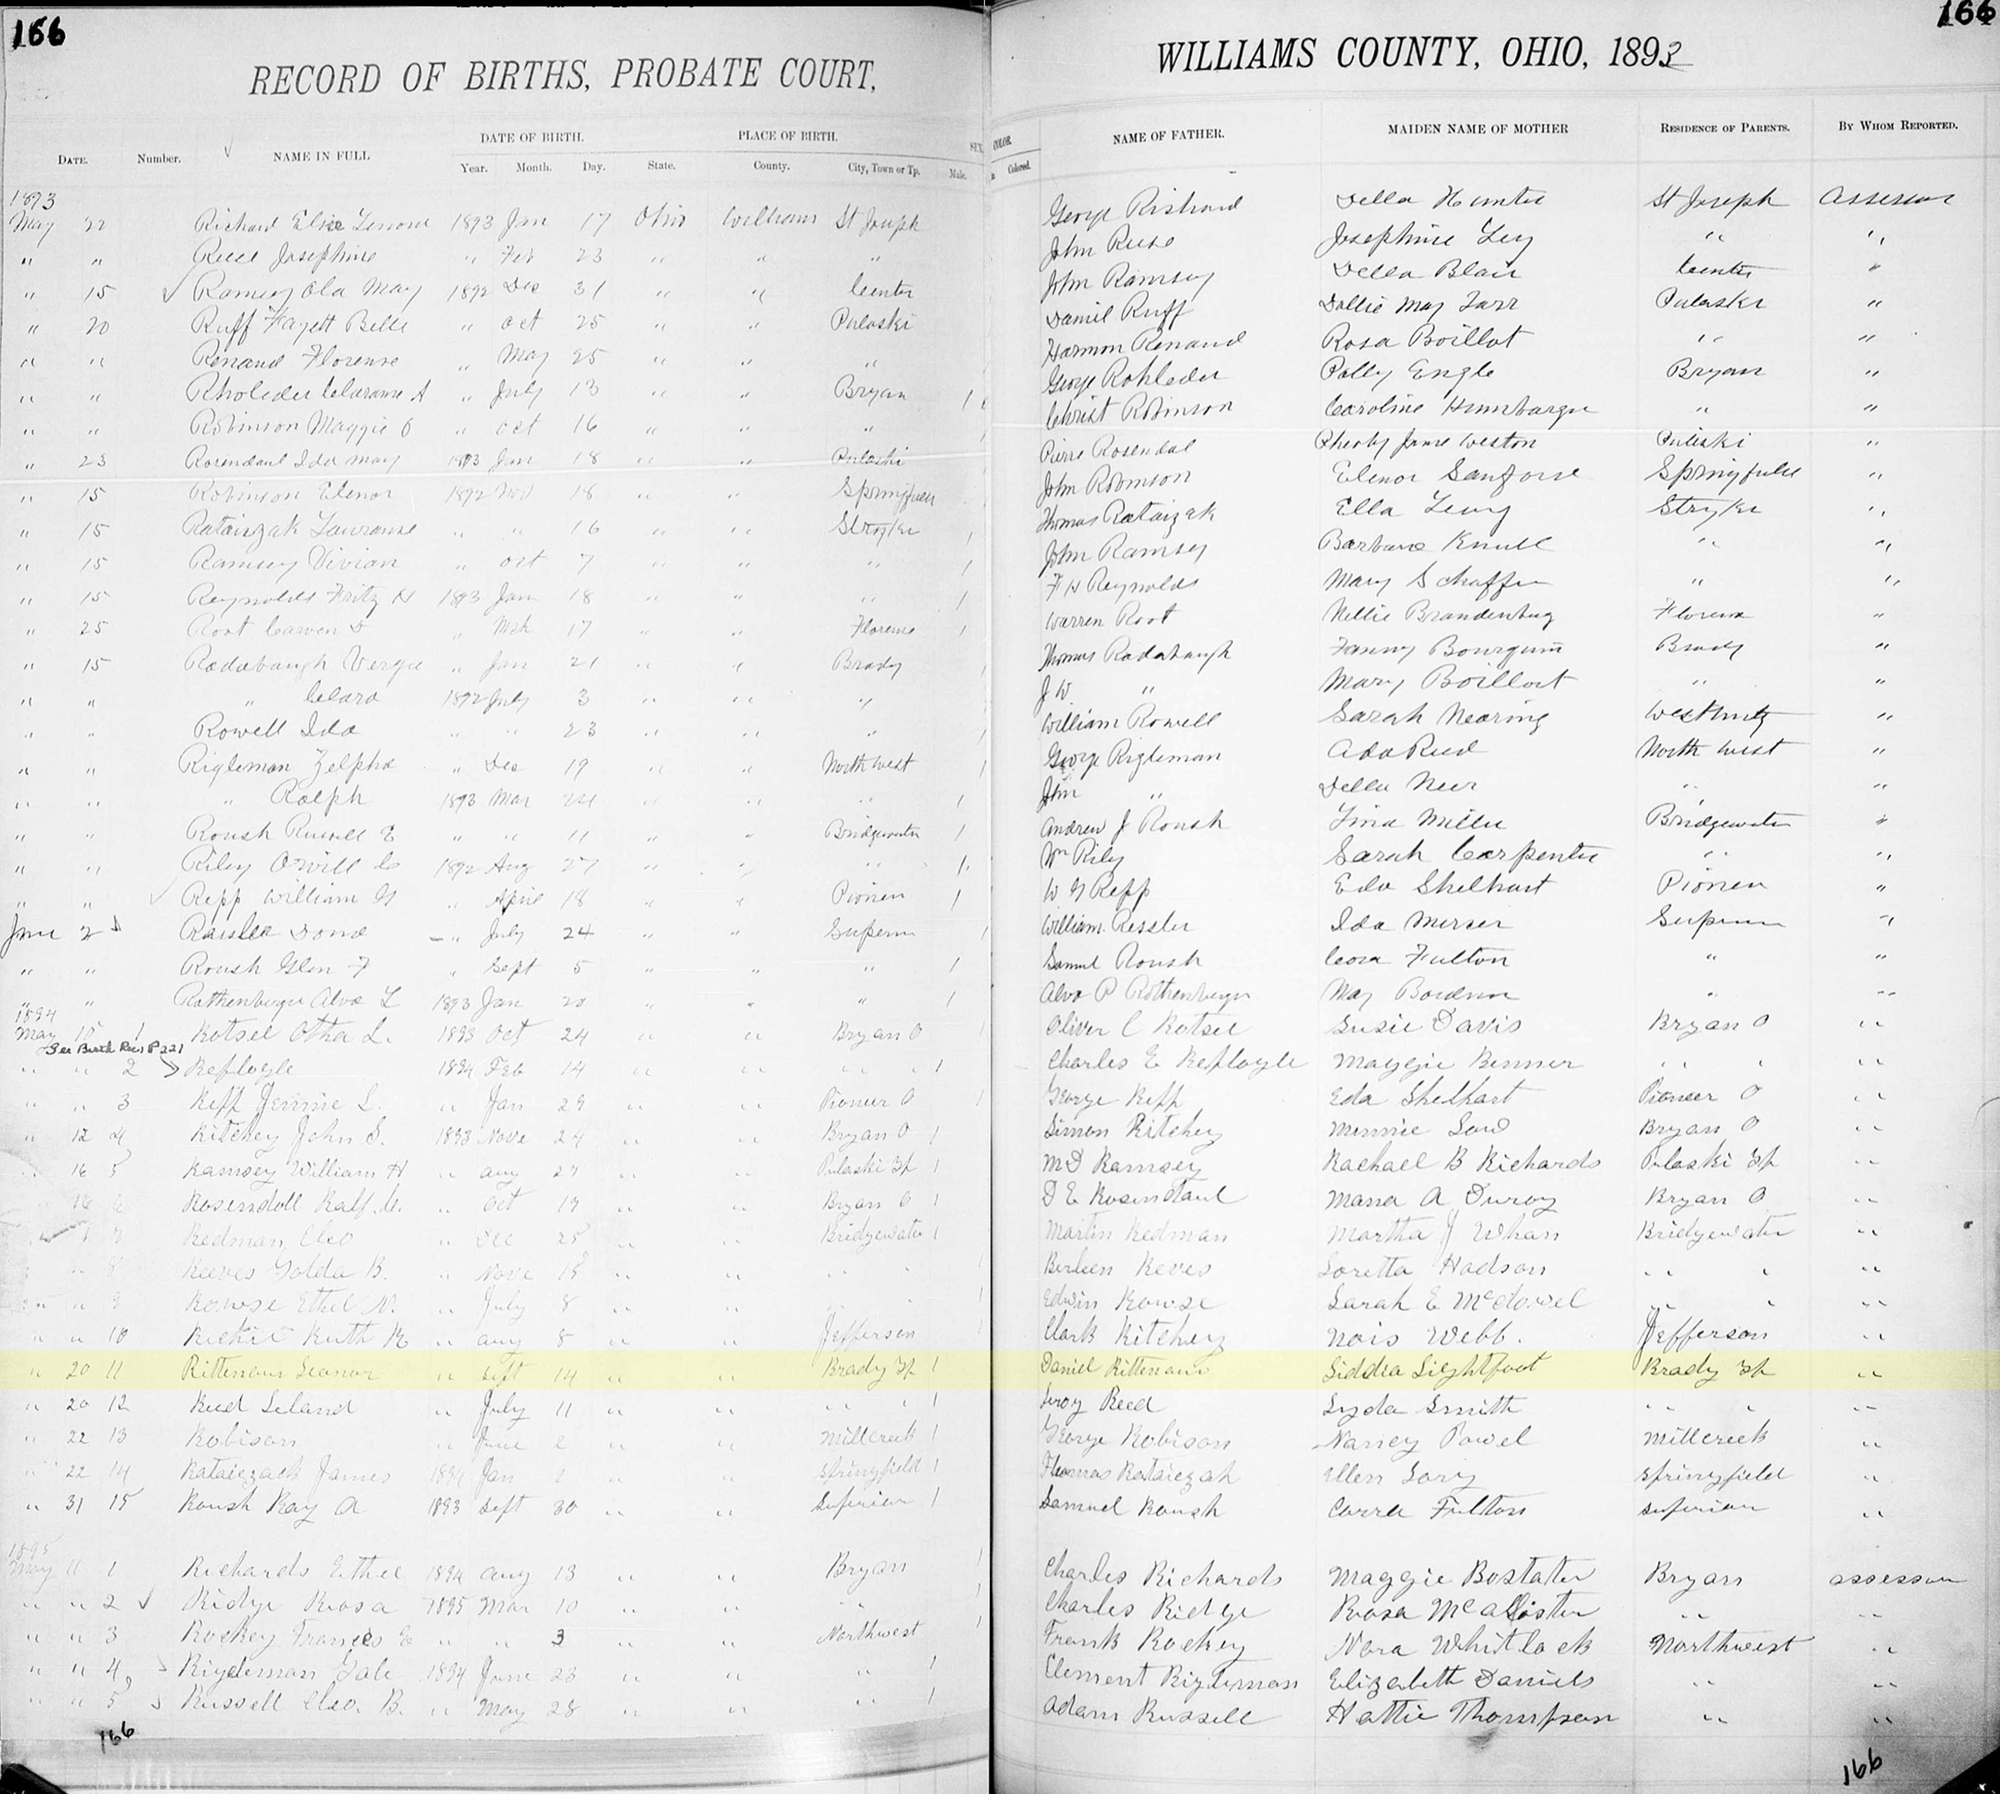 166 166
RECORD OF BIRTHS, PROBATE COURT, WILLIAMS COUNTY, OHIO, 1893
DATE. Number. NAME IN FULL DATE OF BIRTH. PLACE OF BIRTH. SEX. COLOR. NAME OF FATHER. MAIDEN NAME OF MOTHER RESIDENCE OF PARENTS. BY WHOM REPORTED.
Year. Month. Day. State. County. City, Town or Tp. Male. Colored.
1893
May 22 Richard Elsie 1893 Jan 17 Ohio Williams St Joseph George Richard Della Hunter St Joseph Assessor
" " Reese Josephine " Feb 23 " " " John Reese Josephine Ley " "
" 15 ✓ Ramsey Ola May 1892 Dec 31 " " Center John Ramsey Della Blair Center "
" 20 Ruff Fayett Belle " Oct 25 " " Pulaski Daniel Ruff Dollie May Tarr Pulaski "
" " Renaud Florense " May 25 " " " Harmon Renaud Rosa Boillot " "
" " Rholeder Clarance A " July 13 " " Bryan 1 George Rohleder Polly Engle Bryan "
" " Robinson Maggie O " Oct 16 " " " Christ Robinson Caroline Humbarger " "
" 23 Rosendaul Ida May 1893 Jan 18 " " Pulaski Pierre Rosendal Pheoby Jane Weston Puleski "
" 15 Robinson Elenor 1892 Nov 18 " " Springfield John Robinson Elenor Springfield "
" 15 Rataiszak Lauranse " " 16 " " Stryker Thomas Rataizak Ella Stryker "
" 15 Ramsey Vivian " Oct 7 " " " 1 John Ramsey Barbara Knull " "
" 15 Reynolds Fritz H 1893 Jan 18 " " " 1 F H Reynolds Mary Schaffer " "
" 25 Root 17 " " Florense 1 Warren Root Nellie Brandenburg Florense "
" 15 Radabaugh Vergie " Jan 21 " " Brady Thomas Radabaugh Fanny Bourquin Brady "
" " " Clara 1892 July 3 " " " J W " Mary Boillort " "
" " Rowell Ida " " 23 " " " William Rowell Sarah Nearing "
" " Rigleman Zelpha " Dec 19 " " North West George Rigleman Ada Reed North West "
" " " Ralph 1893 Mar 24 " " " 1 John " Della Neer " "
" " Roush Russell E " " 11 " " Bridgewater 1 Andrew J Roush Lina Miller Bridgewater "
" " Riley Orvill C 1892 Aug 27 " " " 1 Wm Rily Sarah Carpenter " "
" " ✓ Repp William G " April 18 " " Pioneer 1 W G Repp Eda Shelhart Pioneer "
June 2 " July 24 " " Superior William Ressler Ida Mercer Superior "
" " Roush Glen F " Sept 5 " " " 1 Samuel Roush Cora Fulton " "
" " Rothenberger Alva L 1893 Jan 20 " " " 1 Alva P Rothenberger May " "
1894
May 10 1 Rotsel Otha L. 1893 Oct 24 " " Bryan O Oliver C Rotsel Susie Davis Bryan O "
See Birth Rec P 221
" " 2 Reflogle 1894 Feb 14 " " " " 1 Charles E Reflogle Maggie Benner " " "
" " 3 Repp Jennie L. " Jan 29 " " Pioneer O George Repp Eda Shelhart Pioneer O "
" 12 4 Ritchey John S. 1893 Nove 24 " " Bryan O 1 Simon Ritchey Minnie Low Bryan O "
" 16 5 Ramsey William H " Aug 27 " " Pulaski Tp 1 M D Ramsey Rachael B Richards Pulaski Tp "
" 16 6 Rosendoll Ralf C. " Oct 19 " " Bryan O 1 D E Rosendaul A Duroy Bryan O "
Redman, Cleo " Dec 25 " " Bridgewater 1 Martin Redman Martha J Whan Bridgewater "
" 8 Reeves Golda B. " Nove 15 " " " " Reves Loretta Hadson " " "
" " 9 Rowse Ethel M. " July 8 " " " " Edwin Rowse Sarah E McDowel " " "
" " 10 Richie Ruth K " Aug 8 " " Jefferson Clark Ritchey Nois Webb. Jefferson "
" 20 11 Rittenour Leonor " Sept 14 " " Brady Tp 1 Daniel Rittenour Siddia Lightfoot Brady Tp "
" 20 12 Reed Leland " July 11 " " " " 1 Leroy Reed Lyda Smith " " "
" 22 13 Robison " June 2 " " Millcreek 1 George Robison Nancy Powel Millcreek "
" 22 14 Rataiczack James 1894 Jan 2 " " Springfield 1 Thomas Rataiczah Ellen Lary Springfield "
" 31 15 Roush Ray A 1893 Sept 30 " " Superior 1 Samuel Roush Carra Fulton Superior "
1895
May 11 1 Richards Ethel 1894 Aug 13 " " Bryan Charles Richards Maggie Bostater Bryan assessor
" " 2 ✓ Ridge Rosa 1895 Mar 10 " " " Charles Ridge Rosa McAllister " "
" " 3 Rockey Frances E " " 3 " " Northwest Frank Rockey Nora Whitlock Northwest "
" " 4 Rigleman Gale 1894 June 23 " " " 1 Clement Rigleman Elizabeth Daniels " "
" " 5 Russell Cleo. B. " May 28 " " " 1 Adam Russell Hattie Thompson " "
166 166